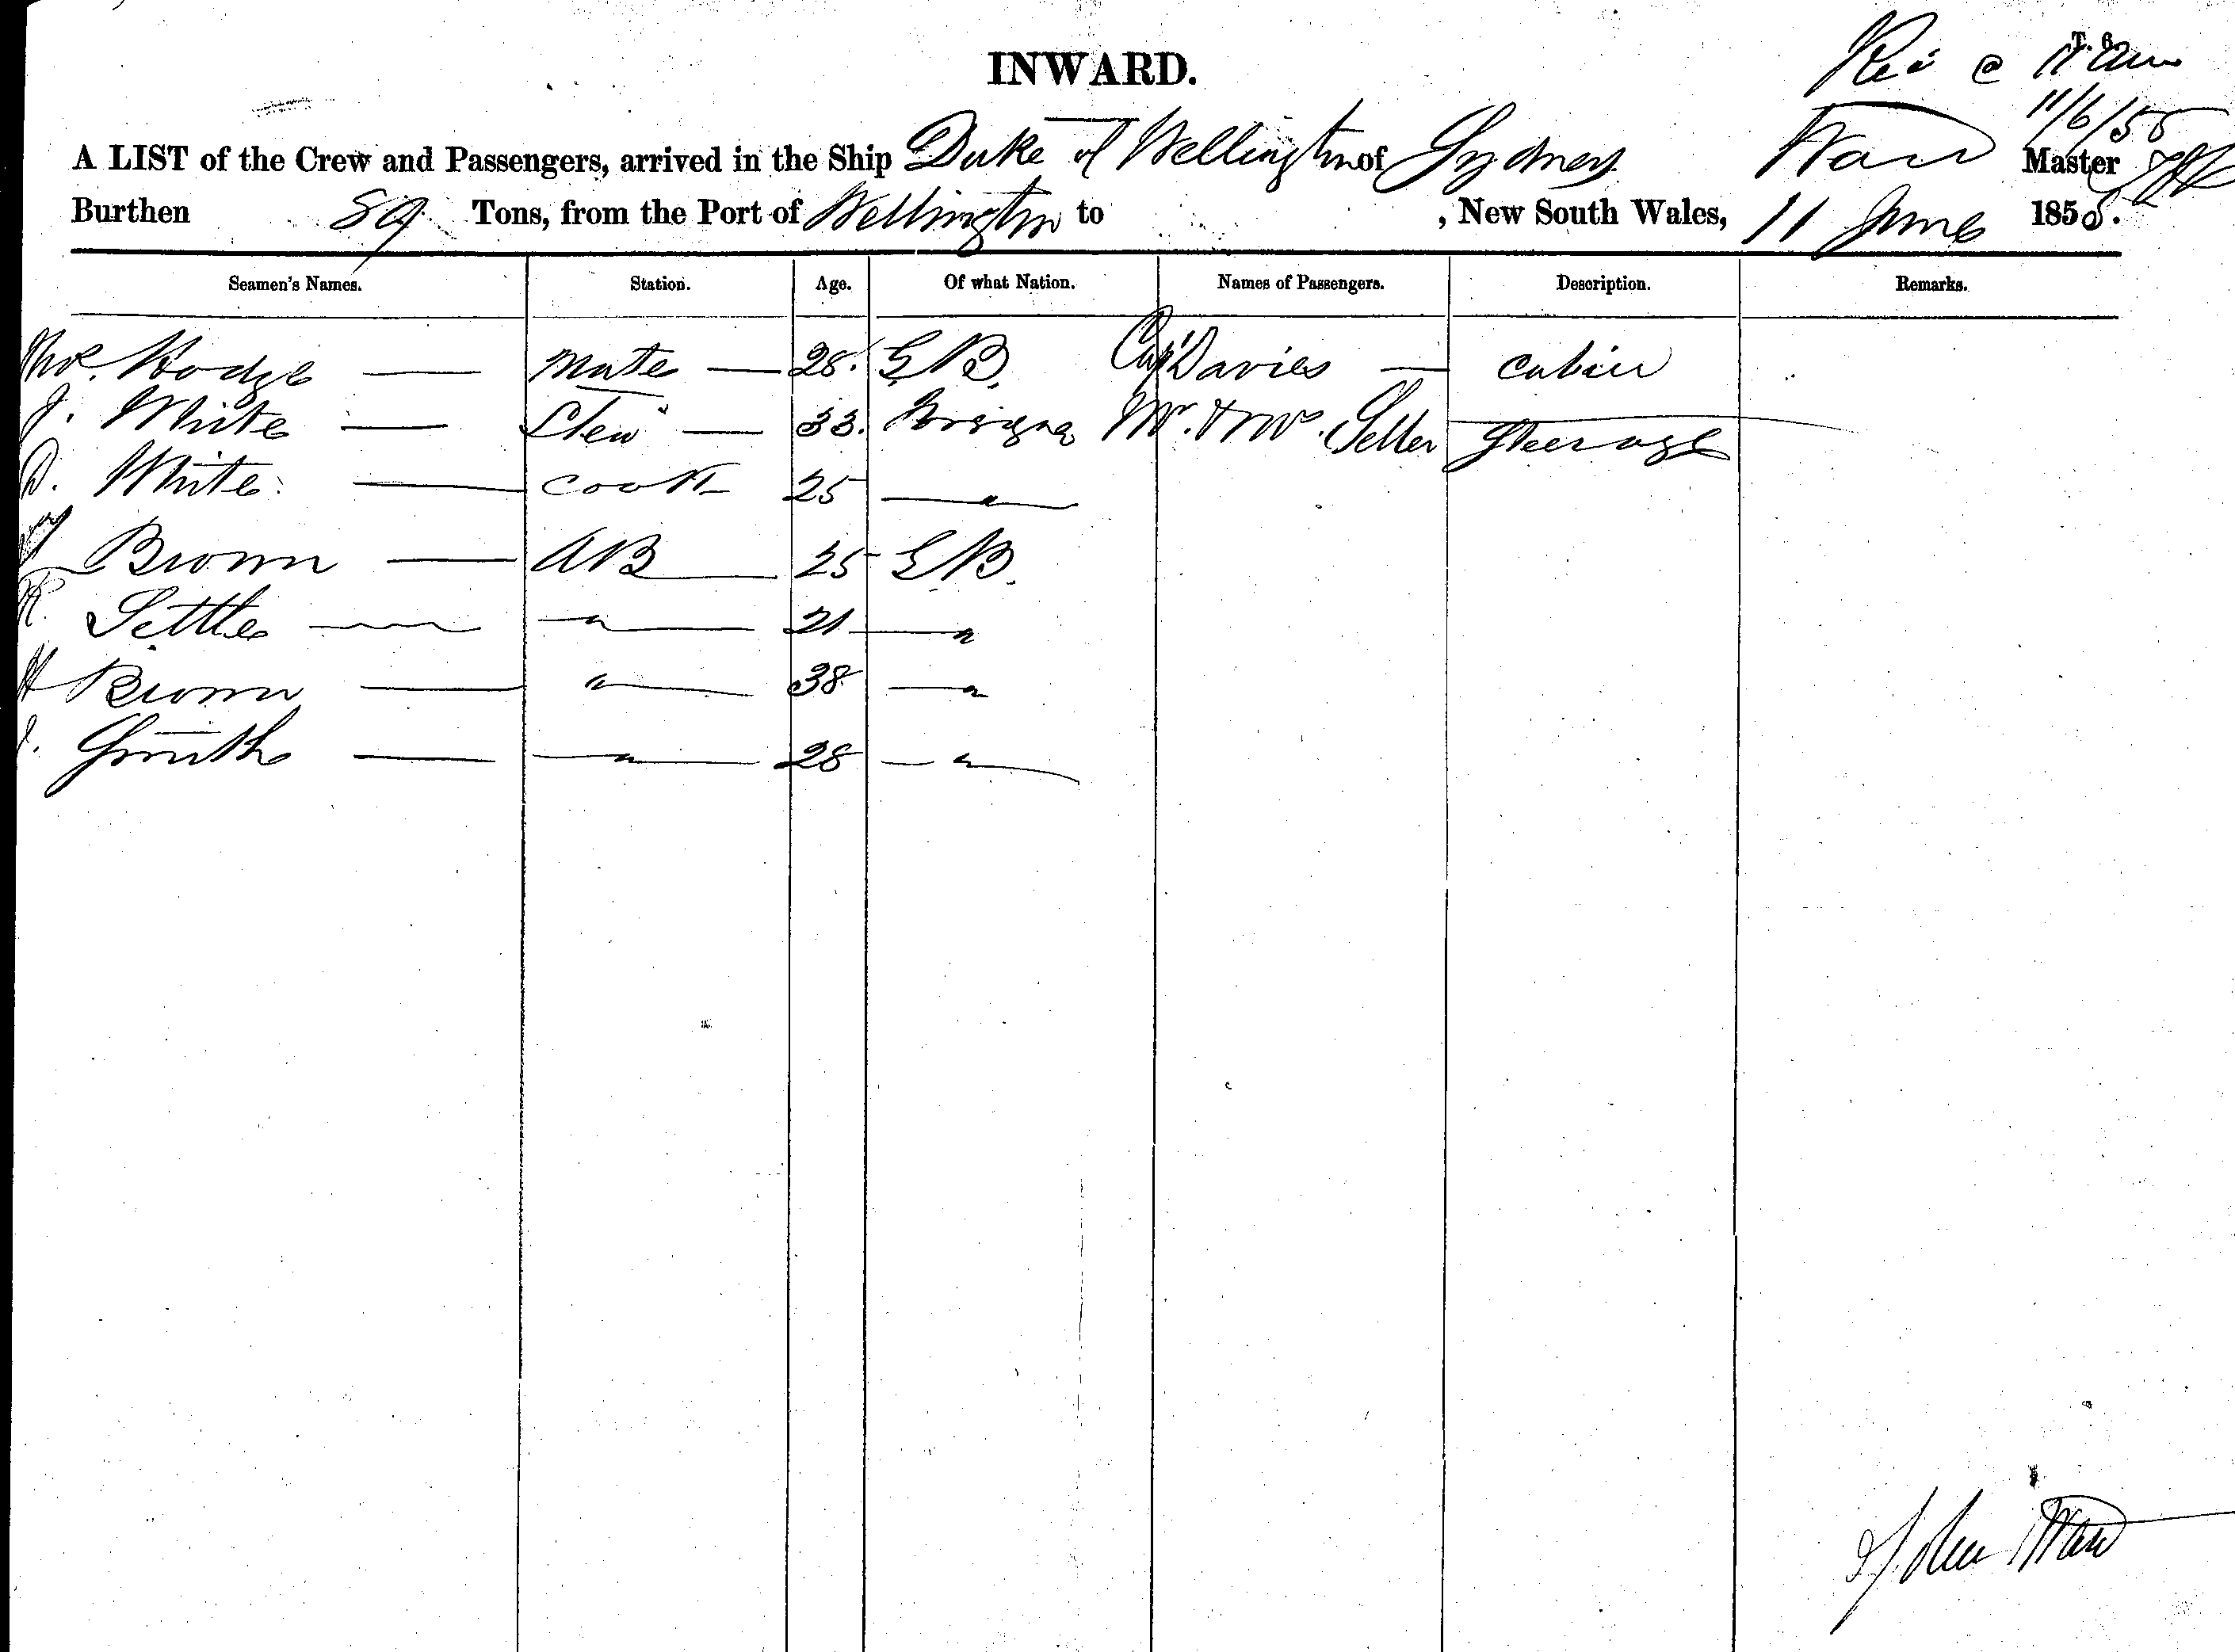 T. 6.
INWARD.
Rec @ 11 am
11/6/58
A LIST of the Crew and Passengers, arrived in the Ship Duke of Wellington of Sydney Ward Master
Burthen 89 Tons, from the Port of Wellington to , New South Wales, 11 June 1858.
Seamen's Names. Station. Age. Of what Nation. Names of Passengers. Description. Remarks.
Thos. Hodge — Mate — 28. G B. Capt Davies — Cabin
J. White — Stew — 33. Mr. & Mrs. Steerage
D. White — Cook 25 — "
Brown — AB 25 G B.
R. Settle — " — 21 — "
H Brown — " — 38 — "
J. Smith — " — 28 — "
John Ward